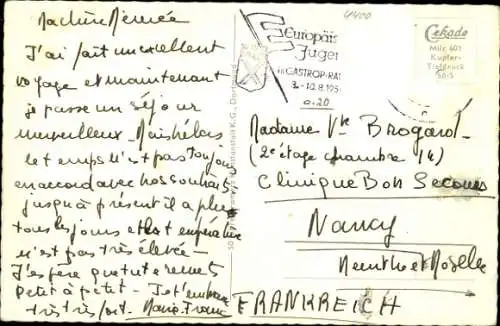 Ma chère Mémée
J'ai fait un excellent
voyage et maintenant
je passe un séjour
merveilleux - Mais hélas
le temps n'est pas toujours
en accord avec nos souhaits
jusqu'à présent il a plu
tous les jours et la température
n'est pas très élevée -
J'espère que tu te remets
petit à petit - Je t'embrasse
très très fort. Marie-France
Europäis
Jugen
CASTROP-RAU
3.-10.8.195
0.20
4400
Cekade
Mik 401
Kupfer-
Tiefdruck
Madame Vve Brogard -
(2e étage chambre 14)
Clinique Bon Secours
Nancy
Meurthe et Moselle
FRANKREICH